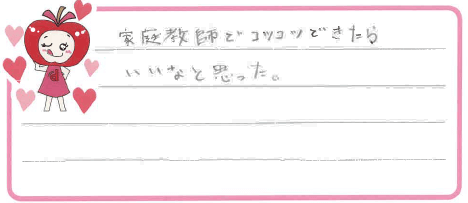 家庭教師でコツコツできたら
いいなと思った。